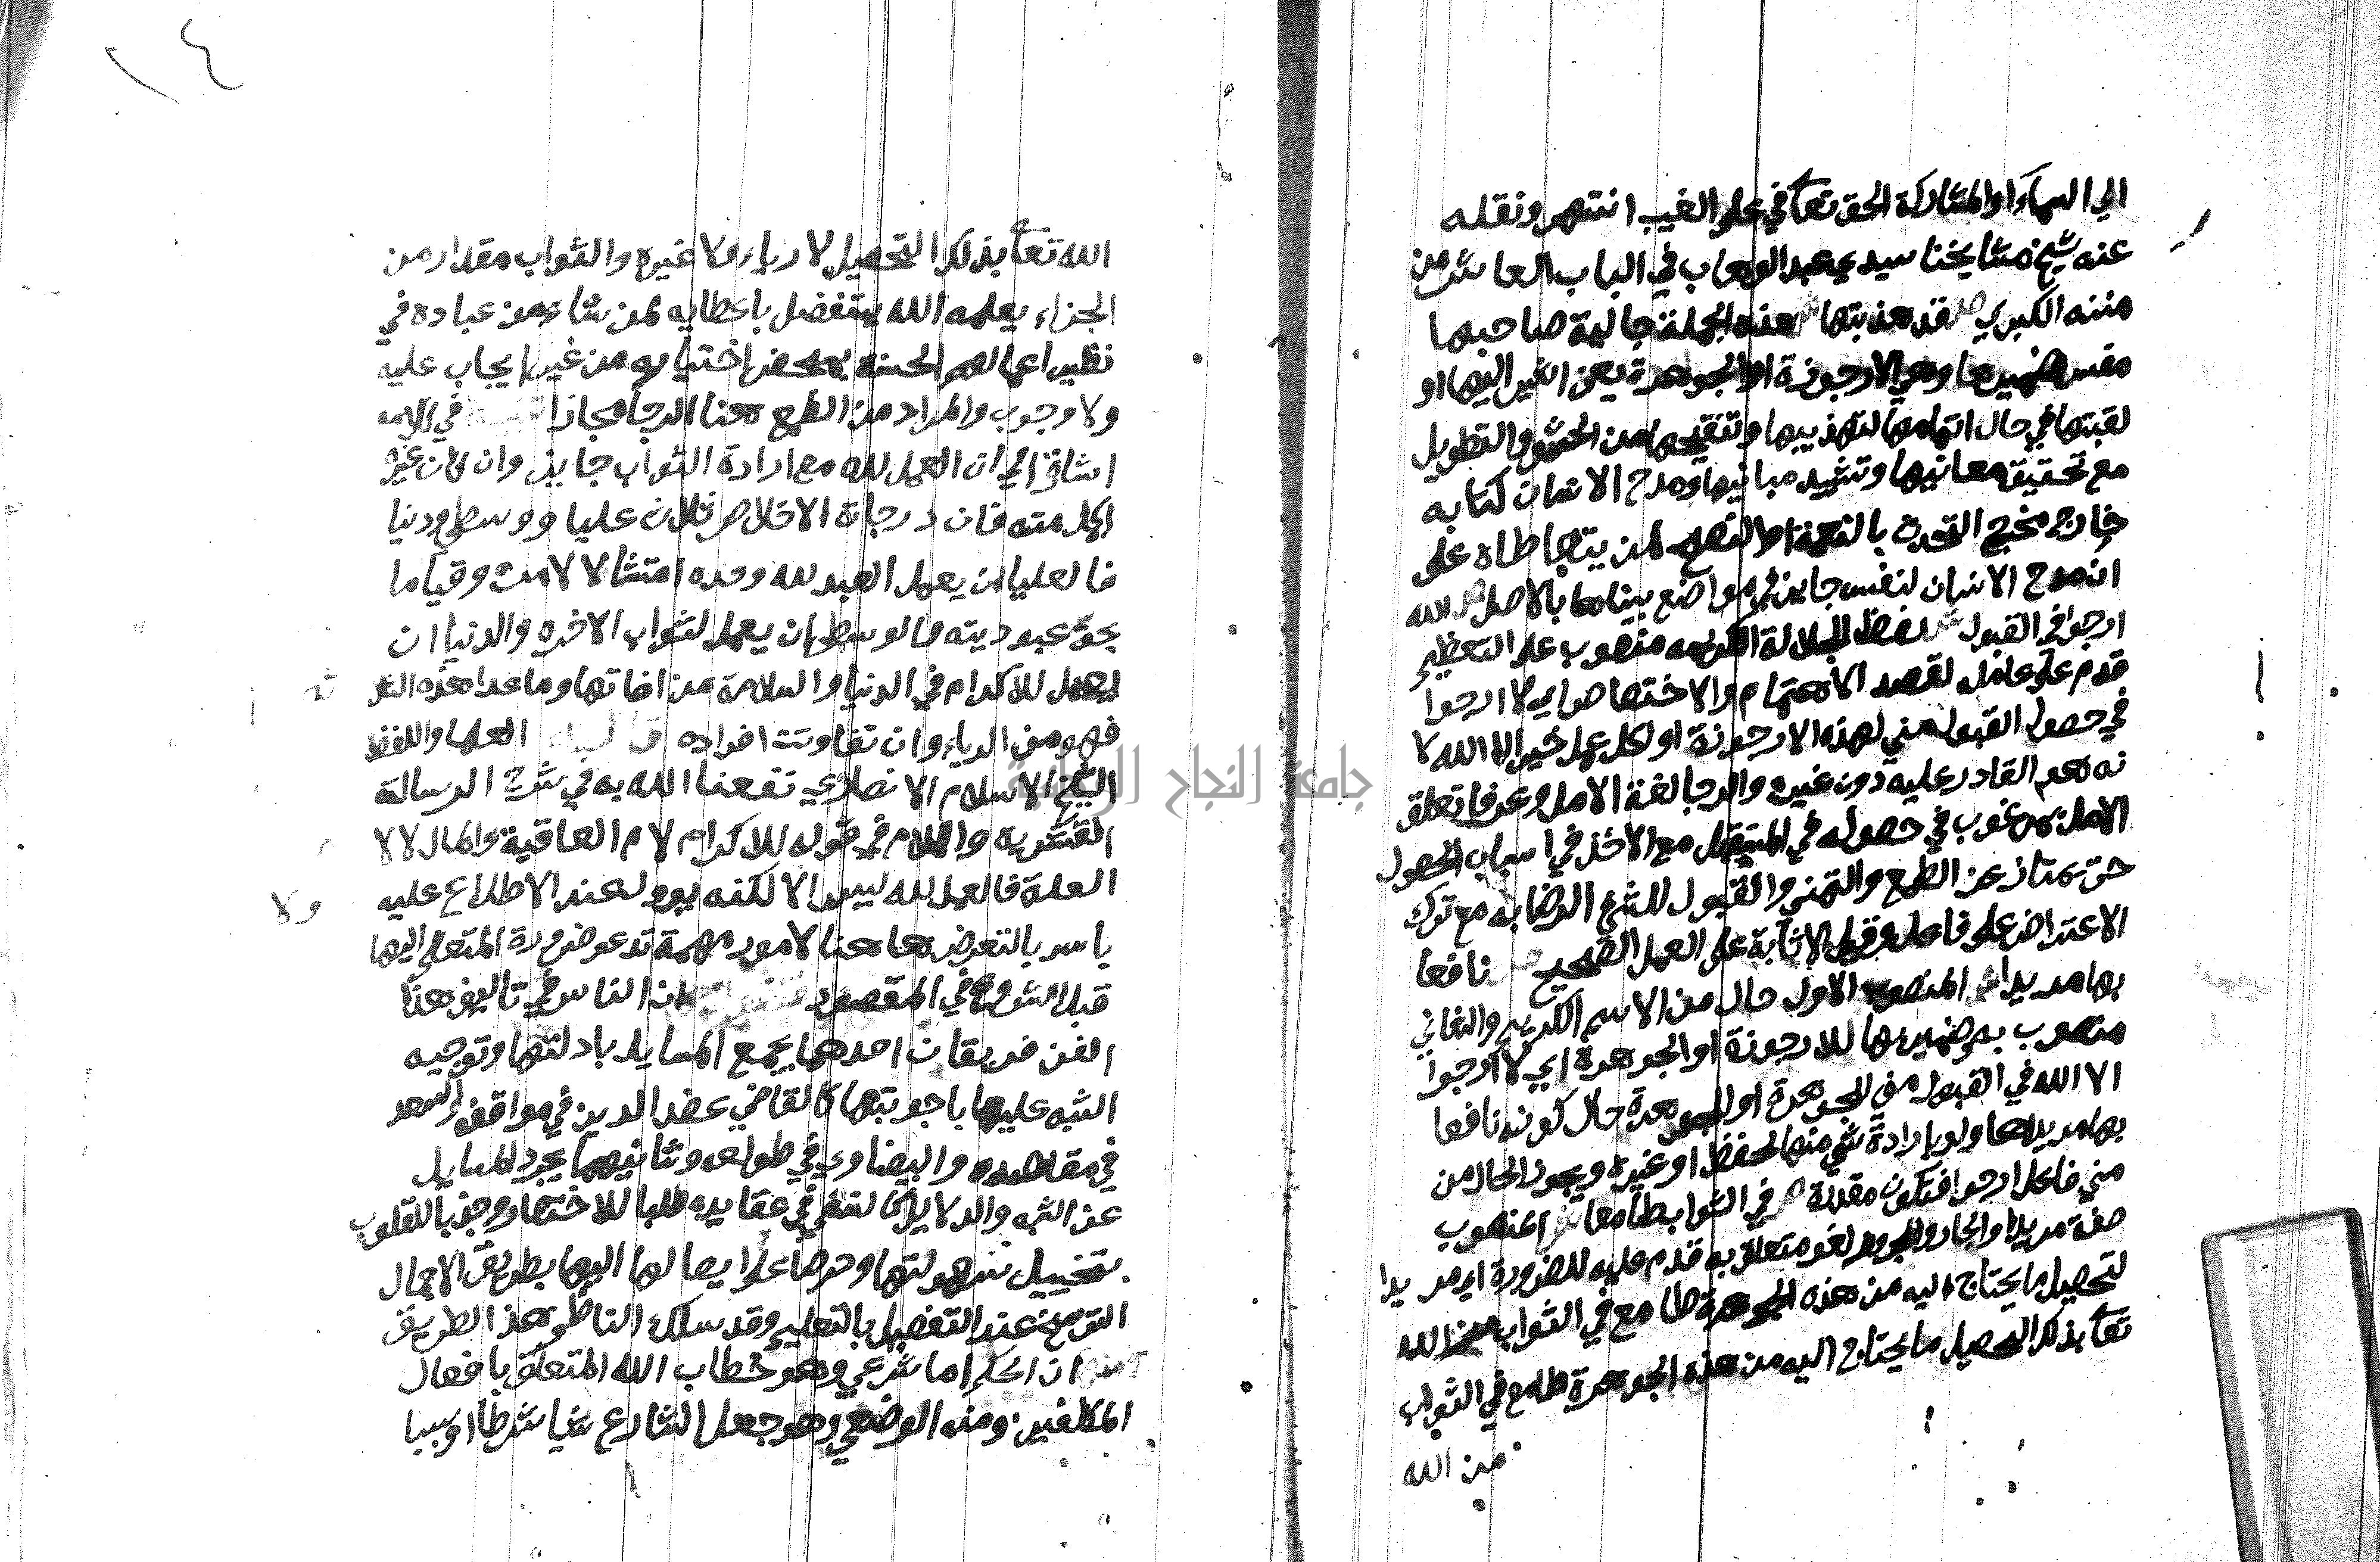 الي السماء او المشاركة الحق تعا في علم الغيب انتهى ونقله
عنه شيخ مشايخنا سيدي عبد الوهاب في الباب العاشر من
مننه الكبري قد هذبتها هذه الجملة حالية صاحبها
مفسر ضميرها وهي الارجوزة او الجوهرة يعن اشير اليها او
لقبتها في حال اتمامها لتهذيبها وتنقيحها من الحشو والتطويل
مع تحقيق معانيها وتشييد مبانيها ومدح الانسان كتابه
خارج مخرج التحدث بالنعمة او النصح لمن يتعاطاه على
ان مدح الانسان لنفسه جايز في مواضع بيناها بالاصل والله
ارجوا في القبول لفظ الجلالة الكريمه منصوب على التعظيم
قدم على عامله لقصد الاهتمام والاختصاص اي لا ارجوا
في حصول القبول مني لهذه الارجوزة او لكل عمل خير الا الله لا
نه هو القادر عليه دون غيره والرجا لغة الامل وعرفا تعلق
الامل بمرغوب في حصوله في المستقبل مع الاخذ في اسباب الحصول
حتى يمتاز عن الطمع والتمني والقبول للشئ الرضا به مع ترك
الاعتراض على فاعله وقيل الاثابة على العمل الصحيح نافعا
بها مريدا المنصوب الاول حال من الاسم الكريم والثاني
منصوب به وضمير بها للارجوزة او الجوهرة اي لا ارجوا
الا الله في القبول مني الجوهرة او الجوهرة حال كونه نافعا
بها مريدها ولو بارادة شي منها لحفظ او غيره ويجوز الحال من
مني فاعل ارجوا فتكون مقدرة في الثواب طامعا المنصوب
صفة مريدا والجار والمجرور لغو متعلق به قدم عليه للضرورة اي مريدا
لتحصيل ما يحتاج اليه من هذه الجوهرة طامع في الثواب من الله
تعا بذلك التحصيل ما يحتاج اليه من هذه الجوهرة طامع في الثواب
من الله
١٤
الله تعا بذلك التحصيل لا رياء ولا غيره والثواب مقدار من
الجزاء يعلمه الله يتفضل باعطايه لمن شاء من عباده في
نظير اعمالهم الحسنه بمحض اختياره من غير ايجاب عليه
ولا وجوب والمراد من الطمع هنا الرجا مجازا في الامه
اشارة الي ان العمل لله مع ارادة الثواب جايز وان كان غيره
اكمل منه فان درجات الاخلاص ثلاث عليا ووسطى ودنيا
فالعليا ان يعمل العبد لله وحده امتثالا لامره وقياما
بحق عبوديته والوسطى ان يعمل لثواب الاخره والدنيا ان
يعمل للاكرام في الدنيا والسلامة من افاتها وما عدا هذه الثلاث
فهو من الرياء وان تفاوتت افراده العلما واللفظ
للشيخ الاسلام الانصاري نفعنا الله به في شرح الرسالة
القشيريه واللام في قوله للاكرام لام العاقبة والمال لا لا
العلة فالعمل لله ليس الا لكنه يوول عند الاطلاع عليه
ولا
باس بالتعرض هاهنا لامور مهمة تدعو ضرورة المتعلم اليها
قبل الشروع في المقصود ان الناس في تاليف هذا
الفن فريقان احدهما يجمع المسايل بادلتها وتوجيه
الشبه عليها باجوبتها كالقاضي عضد الدين في مواقفه والسعد
في مقاصده والبيضاوي في طوالعه وثانيهما يجرد المسايل
عن الشبه والدلايل كالنسفي في عقايده طلبا للاختصار وجذبا للقلوب
بتخييل سهولتها وحرصا على ايصالها اليها بطريق الاجمال
التي عند التفصيل بالتعليم وقد سلك الناظم هذا الطريق
ان الحكم اما شرعي وهو خطاب الله المتعلق بافعال
المكلفين ومنه الوضعي وهو جعل الشارع شيا شرطا او سببا
جامعة النجاح الوطنية